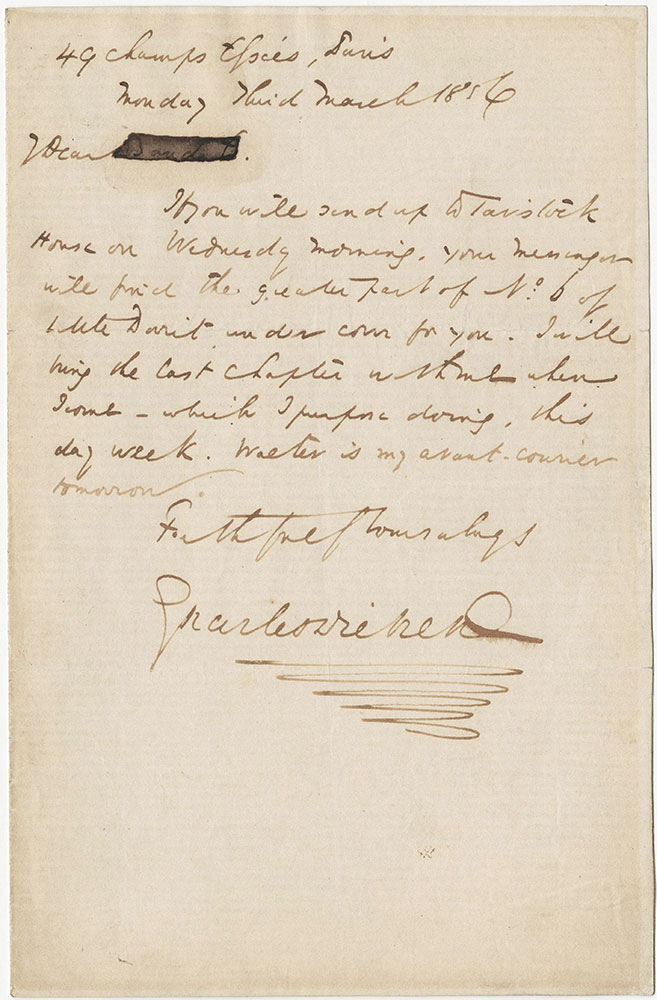 49 Champs Elysées, Paris
Monday Third March 1856
My Dear
If you will send up to Tavistock
House on Wednesday morning, your messenger
will find the greater part of No. 6 of
Little Dorrit, under cover for you. I will
bring the last chapter with me when
I come – which I purpose doing, this
day week. Walter is my avant-courier
tomorrow.
Faithfully Yours always
Charles Dickens